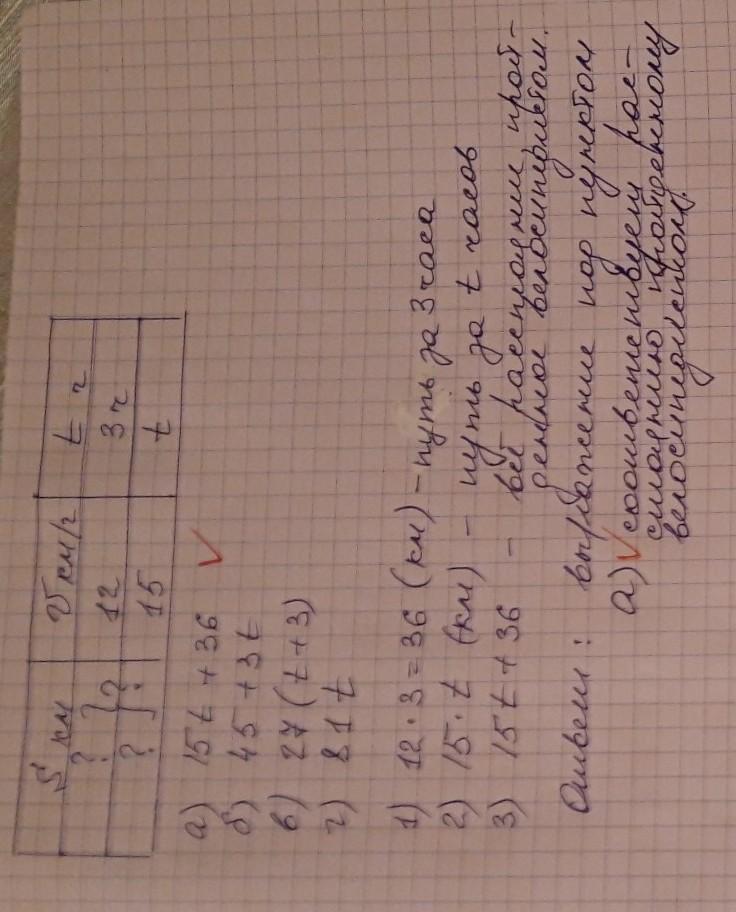 S км V км/г t ч
? 12 3ч
? } ? 15 t
а) 15t + 36 ✓
б) 45 + 3t
в) 27 (t + 3)
г) 81 t
1) 12 · 3 = 36 (км) - путь за 3 часа
2) 15 · t (км) - путь за t часов
3) 15t + 36 - всё расстояние, прой-
денное велосипедистом.
Ответ: выражение под пунктом
а) ✓ соответствует рас-
стоянию пройденному
велосипедистом.